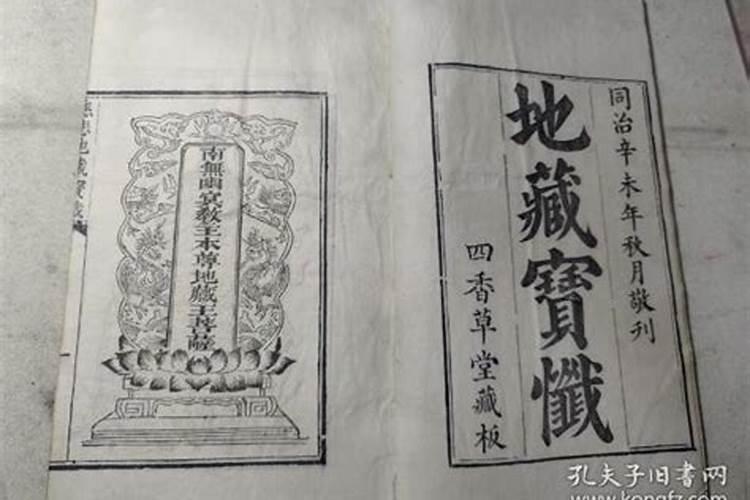 同治辛未年秋月敬刊
地藏寶懺
四香草堂藏板
南無幽冥教主本尊地藏王菩薩
地藏寶懺
孔夫子旧书网
www.kongfz.com